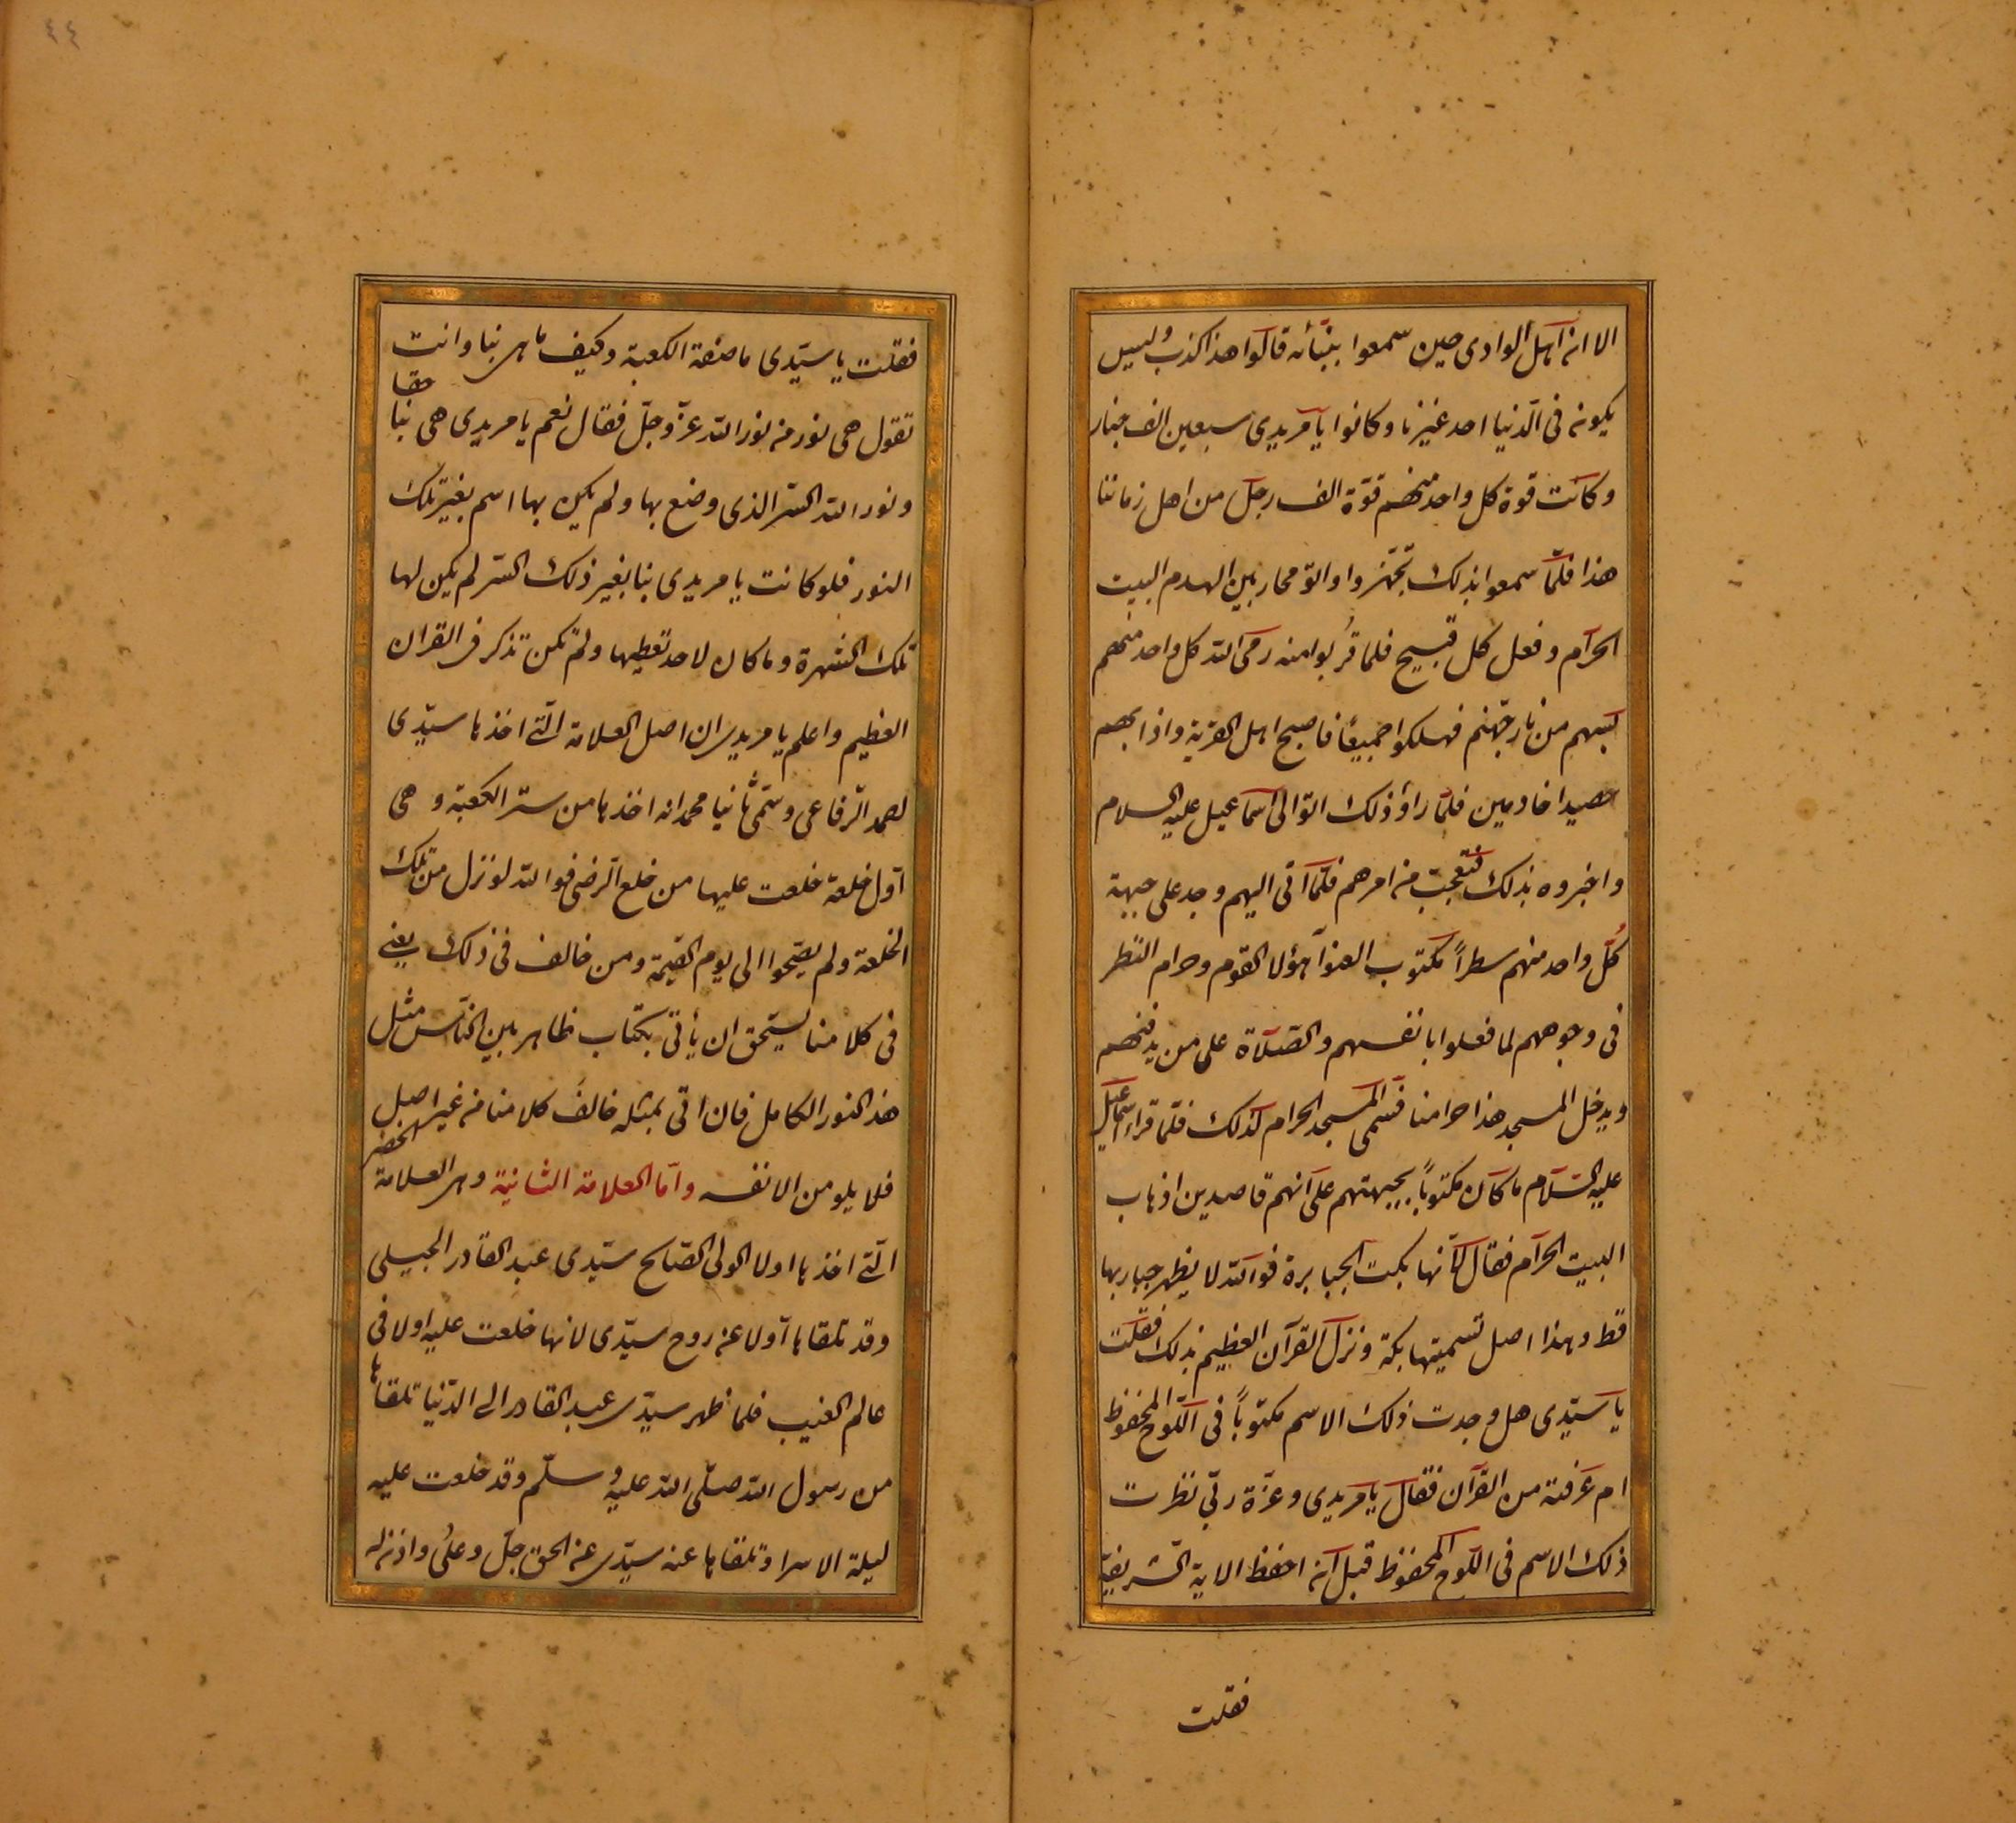 الا ان اهل الوادى حين سمعوا ببنائه قالوا هذا كذب وليس
يكون فى الدّنيا احد غيرنا وكانوا يا مريدى سبعين الف جبار
وكانت قوة كل واحد منهم قوّة الف رجل من اهل زماننا
هذا فلمّا سمعوا بذلك تجهّزوا واتوّ محاربين الهدم البيت
الحرام وفعل كل قبيح فلما قربوا منه رمى الله كل واحد منهم
بسهم من نار جهنم فهلكوا جميعًا فاصبح اهل القرية واذا بهم
حصيدا خادمين فلمّا راؤ ذلك اتوّا الى اسماعيل عليه السلام
واخبروه بذلك فتعجب من امرهم فلمّا اتى اليهم وجد على جبهة
كُلّ واحد منهم سطراً مكتوب العنوا هؤلا القوم وحرام النظر
فى وجوههم لما فعلوا بانفسهم والصّلاة على من يدفنهم
ويدخل المسجد هذا حرامنا فسمى المسجد الحرام كذلك فلمّا قراء اسماعيل
عليه السّلام ما كان مكتوباً بجبهتهم على انهم قاصدين اذهاب
البيت الحرام فقال كأنها بكت الجبابرة فوالله لا يظهر جبار بها
قط وهذا اصل تسميتها بكة ونزل القرآن العظيم بذلك فقلت
يا سيّدى هل وجدت ذلك الاسم مكتوباً فى اللّوح المحفوظ
ام عرفته من القرآن فقال يا مريدى وعزّة ربّى نظرت
ذلك الاسم فى اللّوح المحفوظ قبل ان احفظ الاية الشّريفة
فقلت
٤٤
فقلت يا سيّدى ما صفة الكعبة وكيف ما هى بنا وانت
تقول هى نور من نور الله عزّ وجلّ فقال نعم يا مريدى هى بنا حقا
ونور الله السّر الذى وضع بها ولم يكن بها اسم بغير تلك
النور فلو كانت يا مريدى بنا بغير ذلك السّر لم يكن لها
تلك الشهرة وما كان لاحد تعظيها ولم تكن تذكر فى القران
العظيم واعلم يا مريدى ان اصل العلامة الّتى اخذها سيّدى
احمد الرّفاعى وسمّى ثانيا محمد انه اخذها من ستر الكعبة وهى
اوّل خلعة خلعت عليها من خلع الرضى فوالله لو نزل من تلك
الخلعة ولم يصيحوا الى يوم القيمة ومن خالف فى ذلك يعنى
فى كلامنا يستحق ان يأتى بكتاب ظاهر بين النّاس مثل
هذ النور الكامل فان أتى بمثله خالف كلامنا من غير اصل
فلا يلومن الا نفسه وامّا العلامة الثانية وهى العلامة الخضر
الّتى اخذها اولا الولى الصّالح سيّدى عبد القادر الجيلى
وقد تلقاها اوّلا عن روح سيّدى لانها خلعت عليه اولا فى
عالم الغيب فلما ظهر سيدّى عبد القادر الى الدّنيا تلقاها
من رسول الله صلّى الله عليه وسلّم وقد خلعت عليه
ليلة الاسرا وتلقاها عنه سيدّى عن الحق جلّ وعلى واذن له